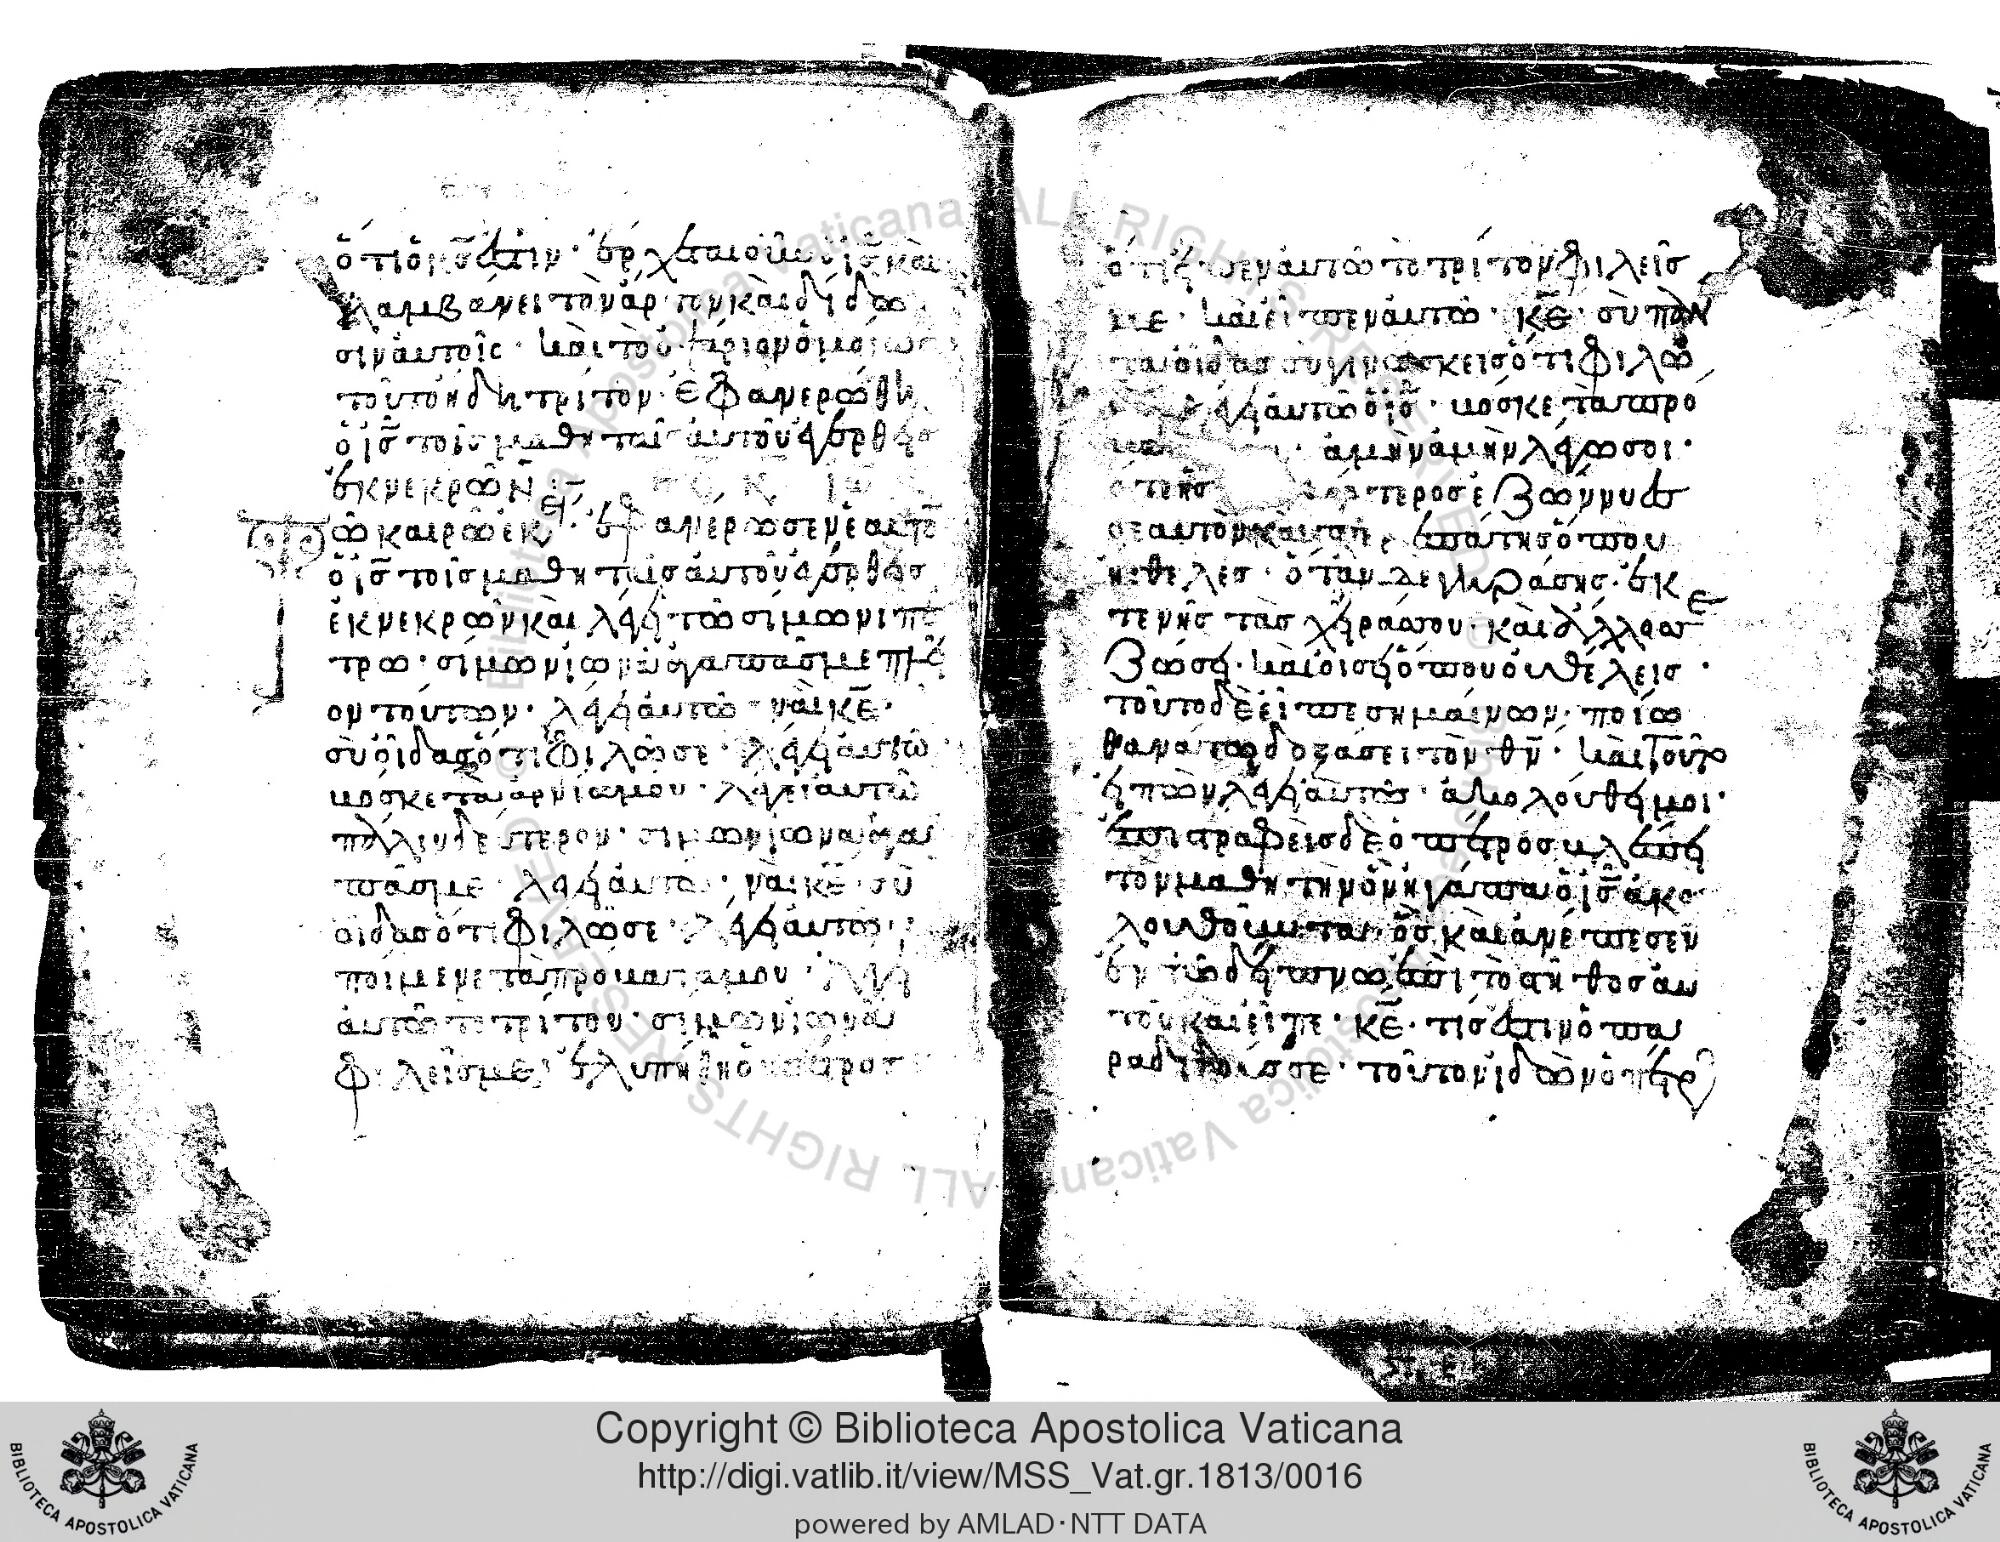 ὅτι ὁ κ̅ς̅ ἐστιν· ἔρχεται οὖν ὁ ι̅ς̅ καὶ
λαμβάνει τὸν ἄρτον καὶ δίδω
σιν αὐτοῖς· καὶ τὸ ὀψάριον ὁμοίως
τοῦτο ἤδη τρίτον ἐφανερώθη
ὁ ι̅ς̅ τοῖς μαθηταῖς αὐτοῦ ἐγερθεὶς
ἐκ νεκρῶν
Τῶ καιρῶ ἐκεί ἐφανέρωσεν ἑαυτὸ
ὁ ι̅ς̅ τοῖς μαθηταῖς αὐτοῦ ἐγερθεὶς
ἐκ νεκρῶν καὶ λέγει τῶ σίμωνι πέ
τρω· σίμων ἰωνᾶ ἀγαπᾶς με πλεῖ
ον τούτων· λέγει αὐτῶ ναὶ κ̅ε̅·
σὺ οἶδας ὅτι φιλῶ σε· λέγει αὐτῶ
βόσκε τὰ ἀρνία μου· λέγει αὐτῶ
πάλιν δεύτερον· σίμων ἰωνᾶ ἀγα
πᾶς με· λέγει αὐτῶ· ναὶ κ̅ε̅· σὺ
οἶδας ὅτι φιλῶ σε· λέγει αὐτῶ·
ποίμενε τὰ πρόβατά μου· λέγει
αὐτῶ τὸ τρίτον· σίμων ἰωνᾶ
φιλεῖς με· ἐλυπήθη ὁ πέτρος
ὅτι εἶπεν αὐτῶ τὸ τρίτον φιλεῖς
με· καὶ εἶπεν αὐτῶ· κ̅ε̅· σὺ πάν
τα οἶδας σὺ γινώσκεις ὅτι φιλῶ
λέγει αὐτῶ ὁ ι̅ς̅· βόσκε τὰ πρό
ἀμὴν ἀμὴν λέγω σοι·
ὅτε ἦς νεώτερος ἐζώννυες
σεαυτὸν καὶ περιεπάτης ὅπου
ἤθελες· ὅταν δὲ γηράσης· ἐκ
τενῆς τὰς χεῖράς σου· καὶ ἄλλος σε
ζώσει· καὶ οἴσει ὅπου οὐ θέλεις·
τοῦτο δὲ εἶπε σημαίνων· ποίω
θανάτω δοξάσει τὸν θ̅ν̅· καὶ τοῦτο
εἰπὼν λέγει αὐτῶ· ἀκολούθει μοι·
ἐπιστραφεὶς δὲ ὁ πέτρος βλέπει
τὸν μαθητὴν ὃν ἠγάπα ὁ ι̅ς̅ ἀκο
λουθοῦντα· ὃς καὶ ἀνέπεσεν
ἐν τῶ δείπνω ἐπὶ τὸ στῆθος αὐ
τοῦ καὶ εἶπε· κ̅ε̅· τίς ἐστιν ὁ πα
ραδιδούς σε· τοῦτον ἰδὼν ὁ πέτρ
Copyright © Biblioteca Apostolica Vaticana
http://digi.vatlib.it/view/MSS_Vat.gr.1813/0016
powered by AMLAD·NTT DATA
BIBLIOTECA APOSTOLICA VATICANA
BIBLIOTECA APOSTOLICA VATICANA